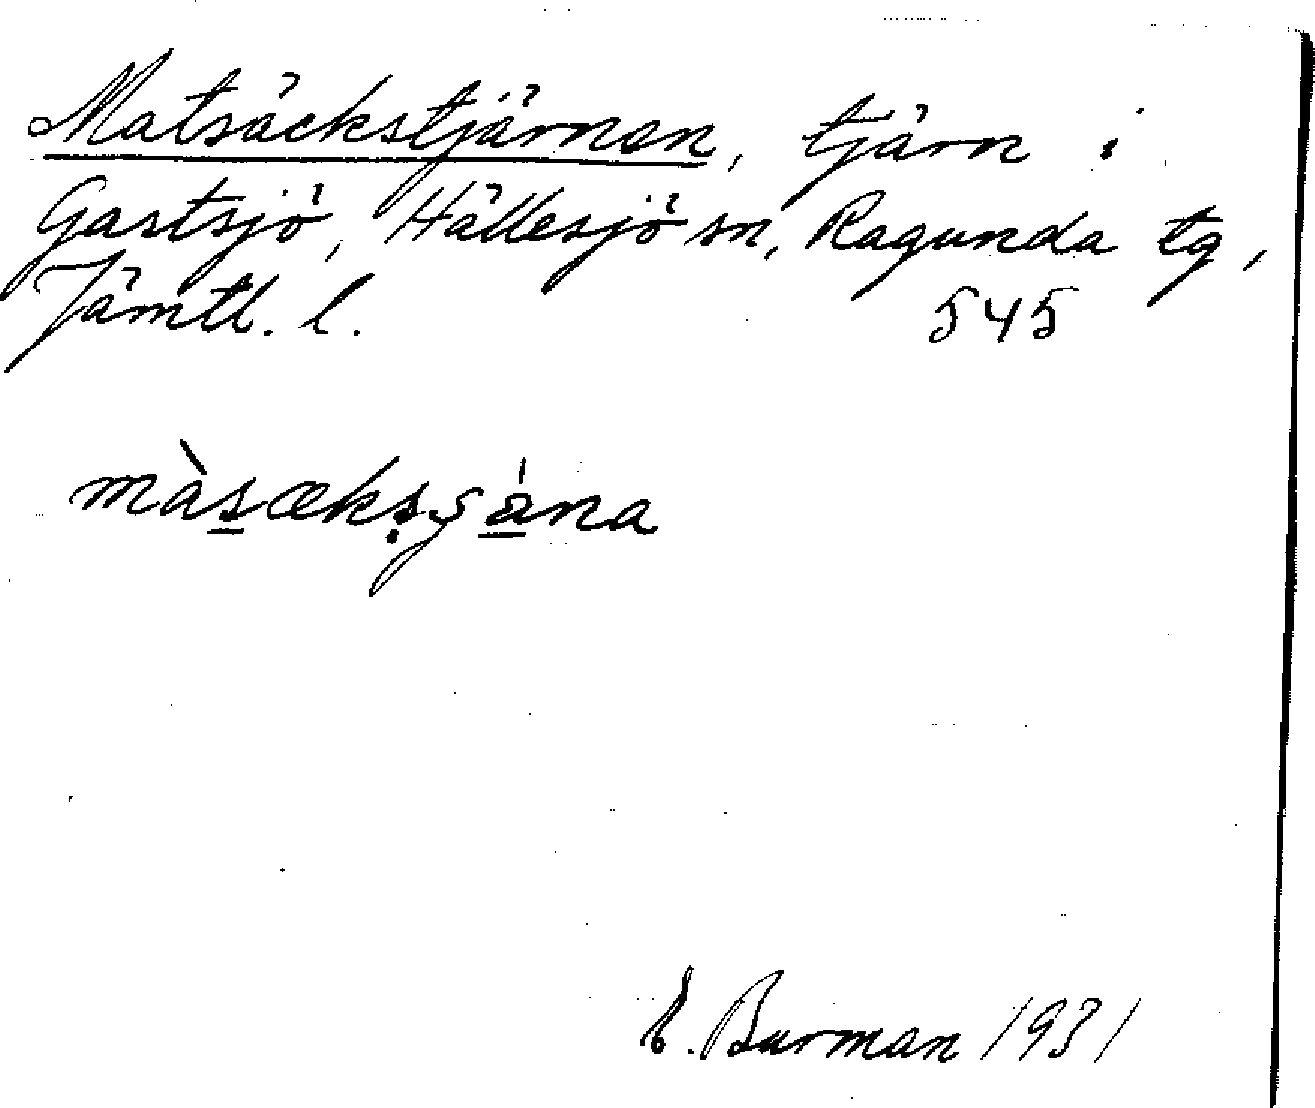 Matsäckstjärnen, tjärn i
Gastsjö, Hällesjö sn, Ragunda tg,
Jämtl. l. 545
màs̲æksṣ̌ǻ̲na
E. Burman 1931